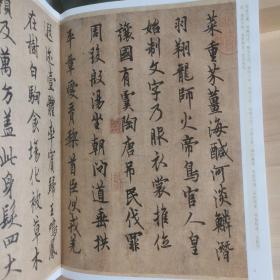 菜重芥薑海鹹河淡鱗潛
羽翔龍師火帝鳥官人皇
始制文字乃服衣裳推位
讓國有虞陶唐弔民伐罪
周發殷湯坐朝問道垂拱
平章愛育黎首臣伏戎羌
遐迩壹體率賓歸王鳴鳳
在樹白駒食場化被草木
及萬方蓋此身髮四大